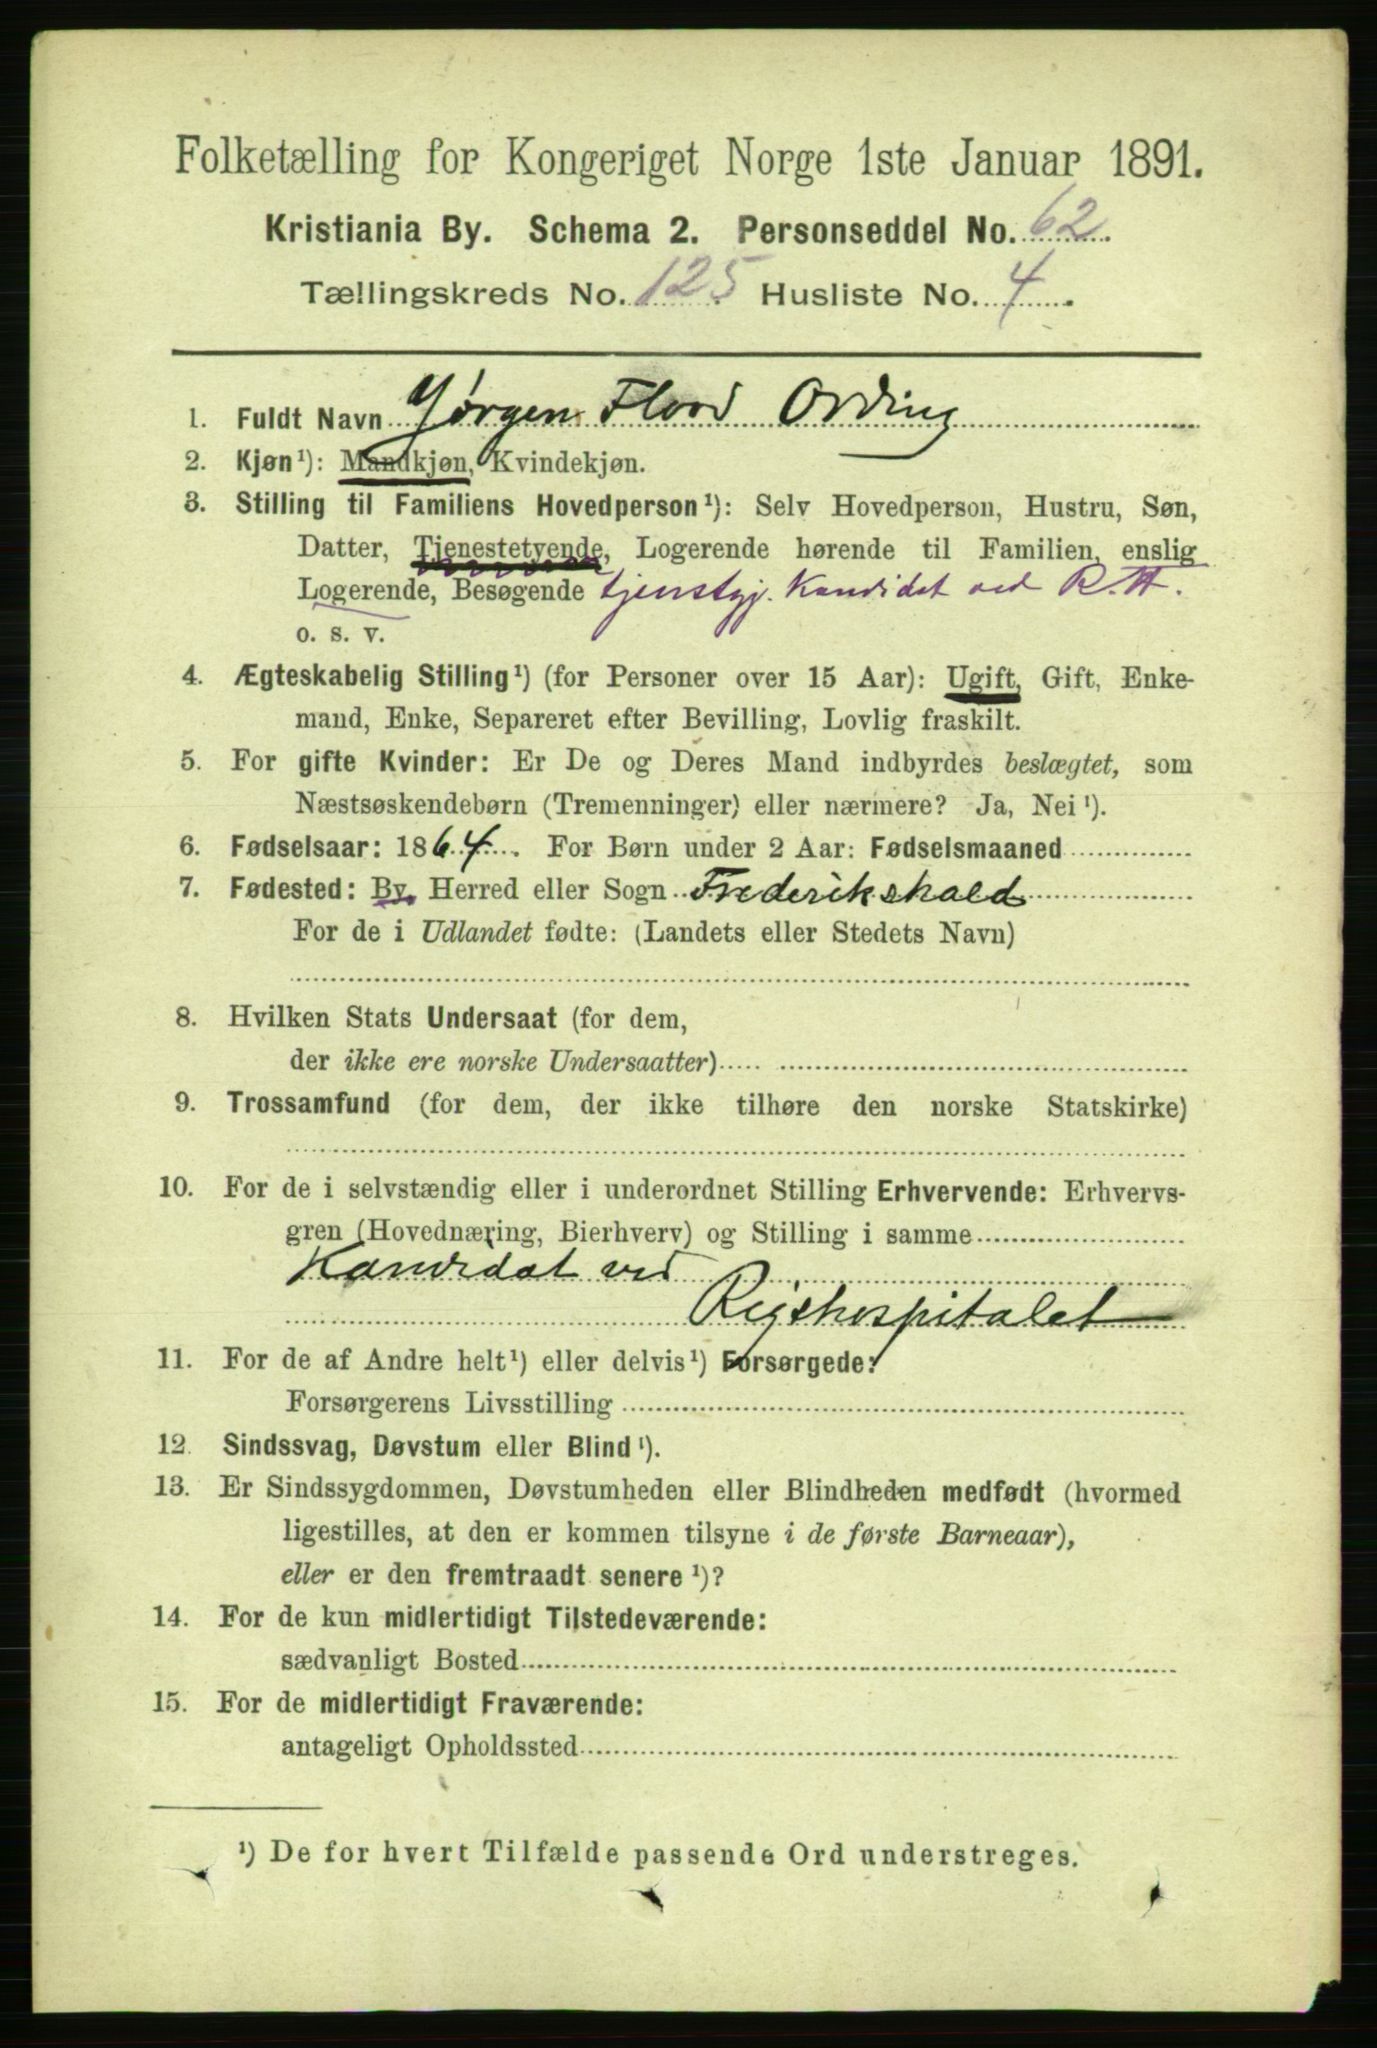 Folketælling for Kongeriget Norge 1ste Januar 1891.
Kristiania By. Schema 2. Personseddel No. 62.
Tællingskreds No. 125 Husliste No. 4.
1. Fuldt Navn Jørgen Flood Ording
2. Kjøn¹): Mandkjøn, Kvindekjøn.
3. Stilling til Familiens Hovedperson¹): Selv Hovedperson, Hustru, Søn,
Datter, Tjenestetyende, Logerende hørende til Familien, enslig
Logerende, Besøgende tjenstgj. Kandidat ved R.H.
o. s. v.
4. Ægteskabelig Stilling¹) (for Personer over 15 Aar): Ugift, Gift, Enke-
mand, Enke, Separeret efter Bevilling, Lovlig fraskilt.
5. For gifte Kvinder: Er De og Deres Mand indbyrdes beslægtet, som
Næstsøskendebørn (Tremenninger) eller nærmere? Ja, Nei¹).
6. Fødselsaar: 1864. For Børn under 2 Aar: Fødselsmaaned
7. Fødested: By, Herred eller Sogn Frederikshald
For de i Udlandet fødte: (Landets eller Stedets Navn)
8. Hvilken Stats Undersaat (for dem,
der ikke ere norske Undersaatter)
9. Trossamfund (for dem, der ikke tilhøre den norske Statskirke)
10. For de i selvstændig eller i underordnet Stilling Erhvervende: Erhvervs-
gren (Hovednæring, Bierhverv) og Stilling i samme
Kandidat ved
Rigshospitalet
11. For de af Andre helt¹) eller delvis¹) Forsørgede:
Forsørgerens Livsstilling
12. Sindssvag, Døvstum eller Blind¹).
13. Er Sindssygdommen, Døvstumheden eller Blindheden medfødt (hvormed
ligestilles, at den er kommen tilsyne i de første Barneaar),
eller er den fremtraadt senere¹)?
14. For de kun midlertidigt Tilstedeværende:
sædvanligt Bosted
15. For de midlertidigt Fraværende:
antageligt Opholdssted
¹) De for hvert Tilfælde passende Ord understreges.